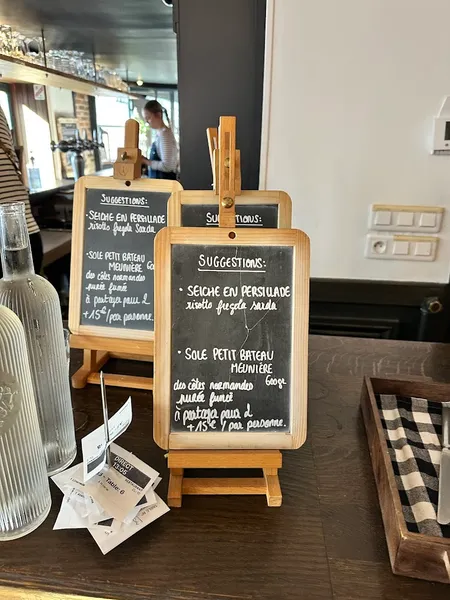 SUGGESTIONS:
- SEICHE EN PERSILLADE
risotto fregola sarda
- SOLE PETIT BATEAU
MEUNIÈRE
des côtes normandes 600gr
purée fumée
à partager pour 2
+15€ / par personne.
SUGGESTIONS:
SUGGESTIONS:
- SEICHE EN PERSILLADE
risotto fregola sarda
- SOLE PETIT BATEAU
MEUNIÈRE 60
des côtes normandes
purée fumée
à partager pour 2
+15€ / par personne.
DIRECT
Table: 6